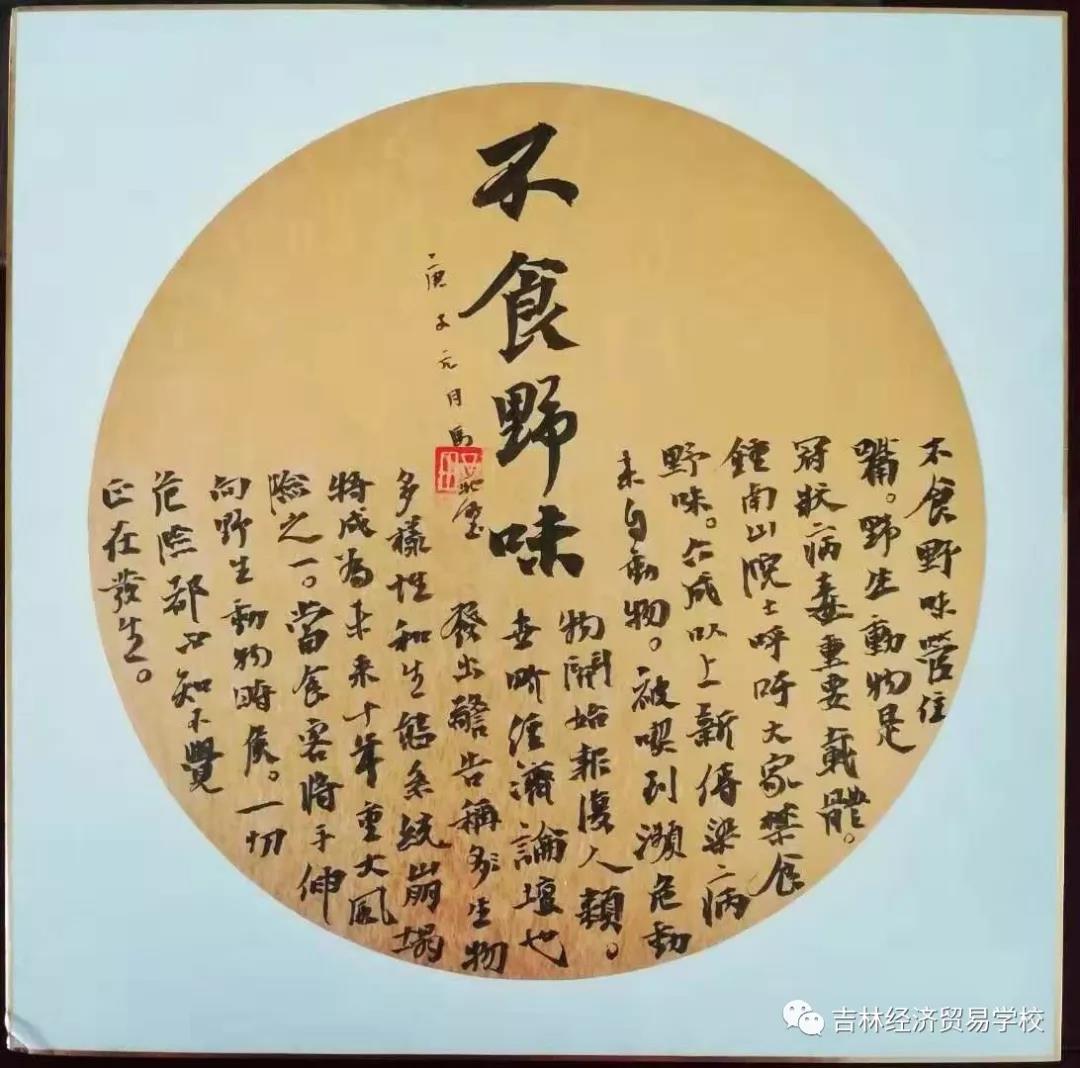 不食野味
不食野味管住
嘴。野生動物是
冠狀病毒重要載體。
鍾南山院士呼吁大家禁食
野味。六成以上新傳染病
来自動物。被喫到瀕危動
物開始報復人類。
世界經濟論壇也
發出警告稱多生物
多樣性和生態系統崩塌
將成為未来十年重大風
險之一。當食客將手伸
向野生動物時候。一切
危險都不知不覺
正在發生。
庚子元月馬
吉林经济贸易学校